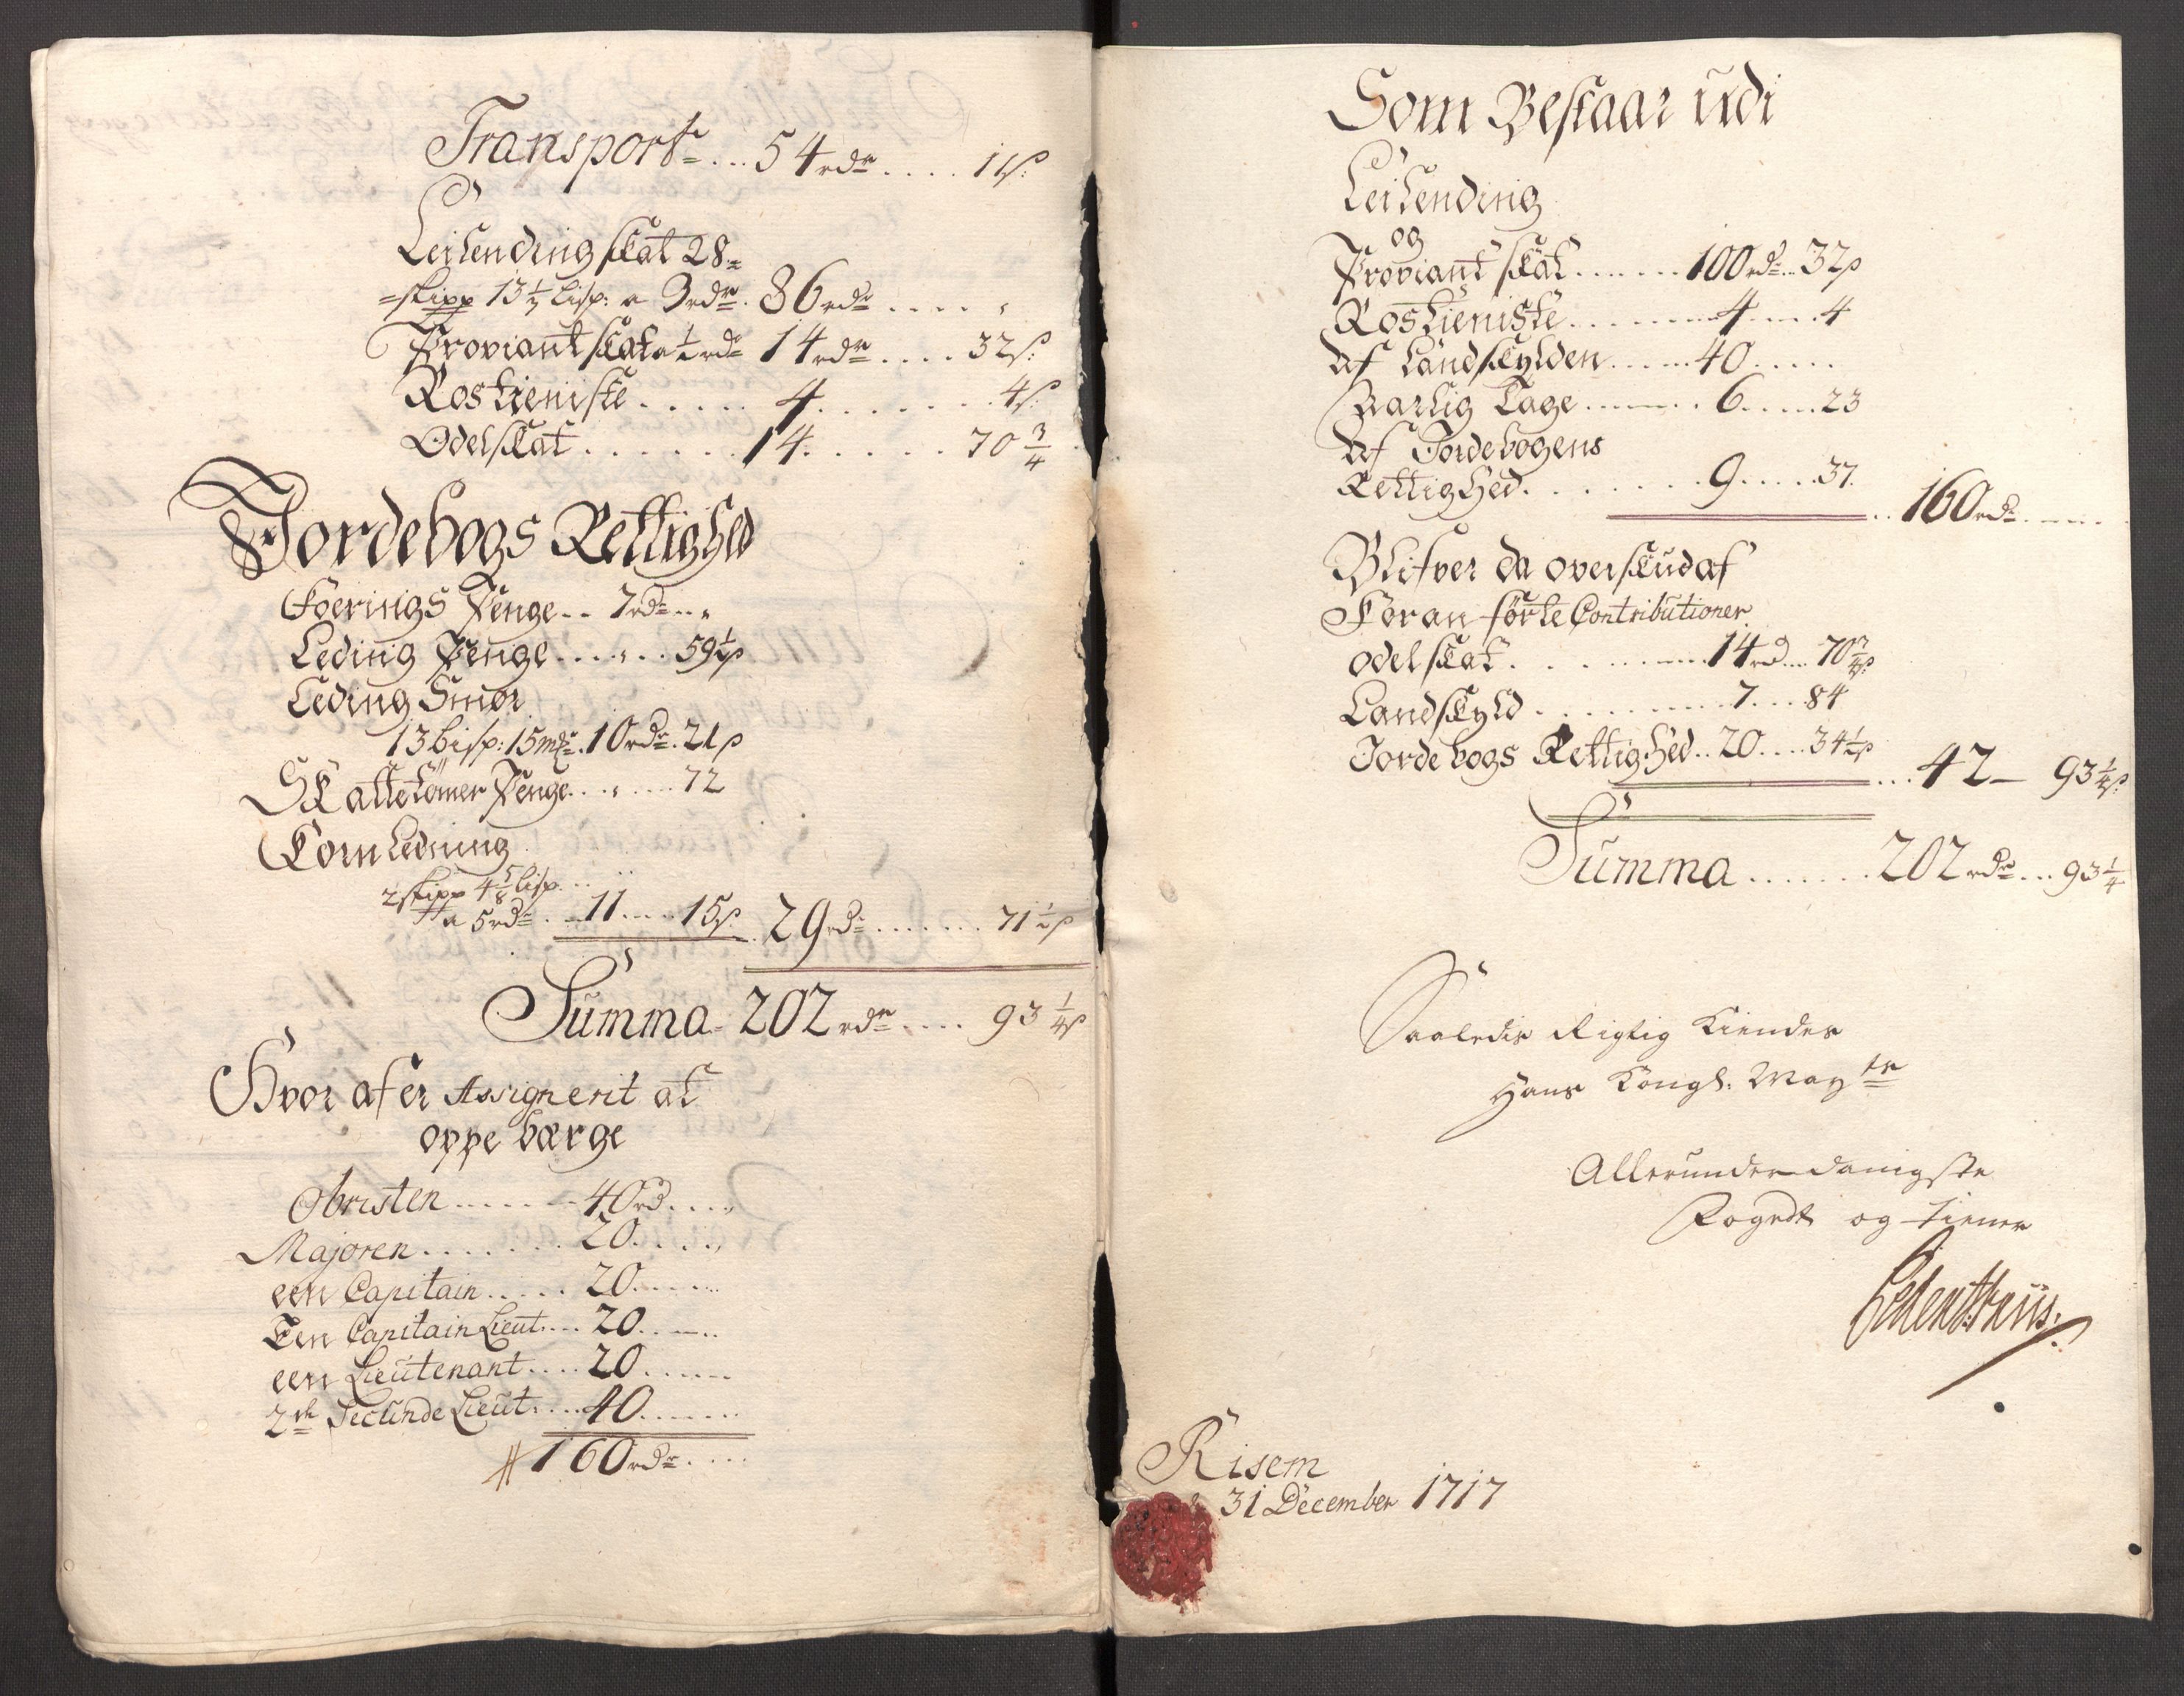 Transport... 54 rdr.... 1 ß:
Leilending skat 28=
=skipp 13 1/2 lisp: a 3 rdr. 86 rdr.....
Proviant skat a 1/2 rdr 14 rdr.... 32 ß:
Rostieniste..... 4........ 4 ß
Odelskat....... 14...... 70 3/4
Jordebogs Rettighed
Foerings Penge.. 7 rdr...
Leding Penge....... 59 1/2 ß
Leding Smør
13 bisp: 15 mk. 10 rdr. 21 ß
Skattetømer Penge....... 72
Korn Ledning
2 skipp 4 5/8 lisp...
a 5 rdr... 11.... 15 ß. 29 rdr....... 71 1/2 ß
Summa 202 rdr.... 93 1/4 ß
Hvor af er Assignerit at
oppebærge
Obristen....... 40 rd....
Majoren....... 20....
een Capitain..... 20.....
Een Capitain Lieut:... 20.....
een Lieutenant.... 20......
2de Secunde Lieut:... 40.......
160 rdr....
Som Bestaar udi
Leilending
og
Proviant skat....... 100 rdr.. 32 ß
Rostieniste........ 4..... 4
Af Landskylden..... 40.....
Aarlig Tage....... 6..... 23
Af Jordebogens
Rettighed......... 9..... 37. .. 160 rdr.....
Blifver da overskud af
Foran førte Contributioner
odelskat......... 14 rd... 70 3/4 ß
Landskyld......... 7... 84
Jordebogs Rettighed.. 20.... 34 1/2 ß ... 42 — 93 1/4 ß:
Summa....... 202 rdr... 93 1/4
Saaledis Rigtig Kiendes
Hans Kongl: Mayts
Allerunderdanigste
Fogedt og tiener
Risem
d 31 December 1717